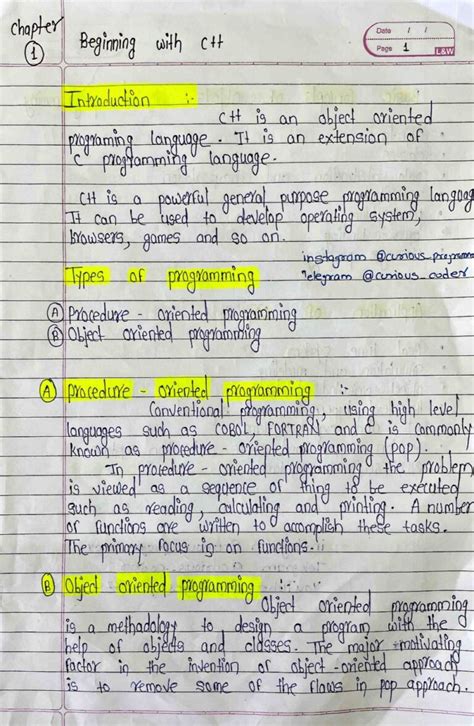 Chapter
1
Beginning with C++
Date / /
Page 1
L&W
Introduction :-
C++ is an object oriented
programing language. It is an extension of
C programming language.
C++ is a powerful general purpose programming langoag
It can be used to develop operating system,
browsers, games and so on.
instagram @curious_programm
Telegram @curious_coder
Types of programming
A Procedure - oriented programming
B Object oriented programming
A procedure - oriented programming :-
Conventional programming, using high level
languages such as COBOL, FORTRAN and C is commonly
known as procedure - oriented programming (pop).
In procedure - oriented programming the problem
is viewed as a sequence of thing to be executed
such as reading, calculating and printing. A number
of functions are written to accomplish these tasks.
The primary focus is on functions.
B Object oriented programming :-
Object oriented programming
is a methadology to design a program with the
help of objects and classes. The major motivating
factor in the invention of object-oriented approach
is to remove some of the flaws in pop approach.